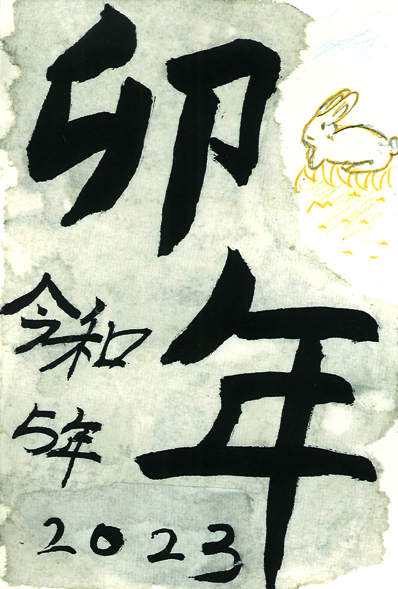 卯年
令和
5年
2023